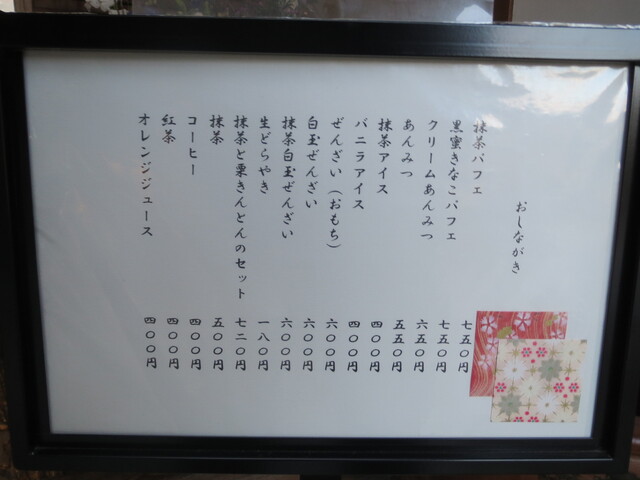 おしながき
抹茶パフェ 七五〇円
黒蜜きなこパフェ 七五〇円
クリームあんみつ 六五〇円
あんみつ 五五〇円
抹茶アイス 四〇〇円
バニラアイス 四〇〇円
ぜんざい（おもち） 六〇〇円
白玉ぜんざい 六〇〇円
抹茶白玉ぜんざい 六〇〇円
生どらやき 一八〇円
抹茶と栗きんとんのセット 七二〇円
抹茶 五〇〇円
コーヒー 四〇〇円
紅茶 四〇〇円
オレンジジュース 四〇〇円